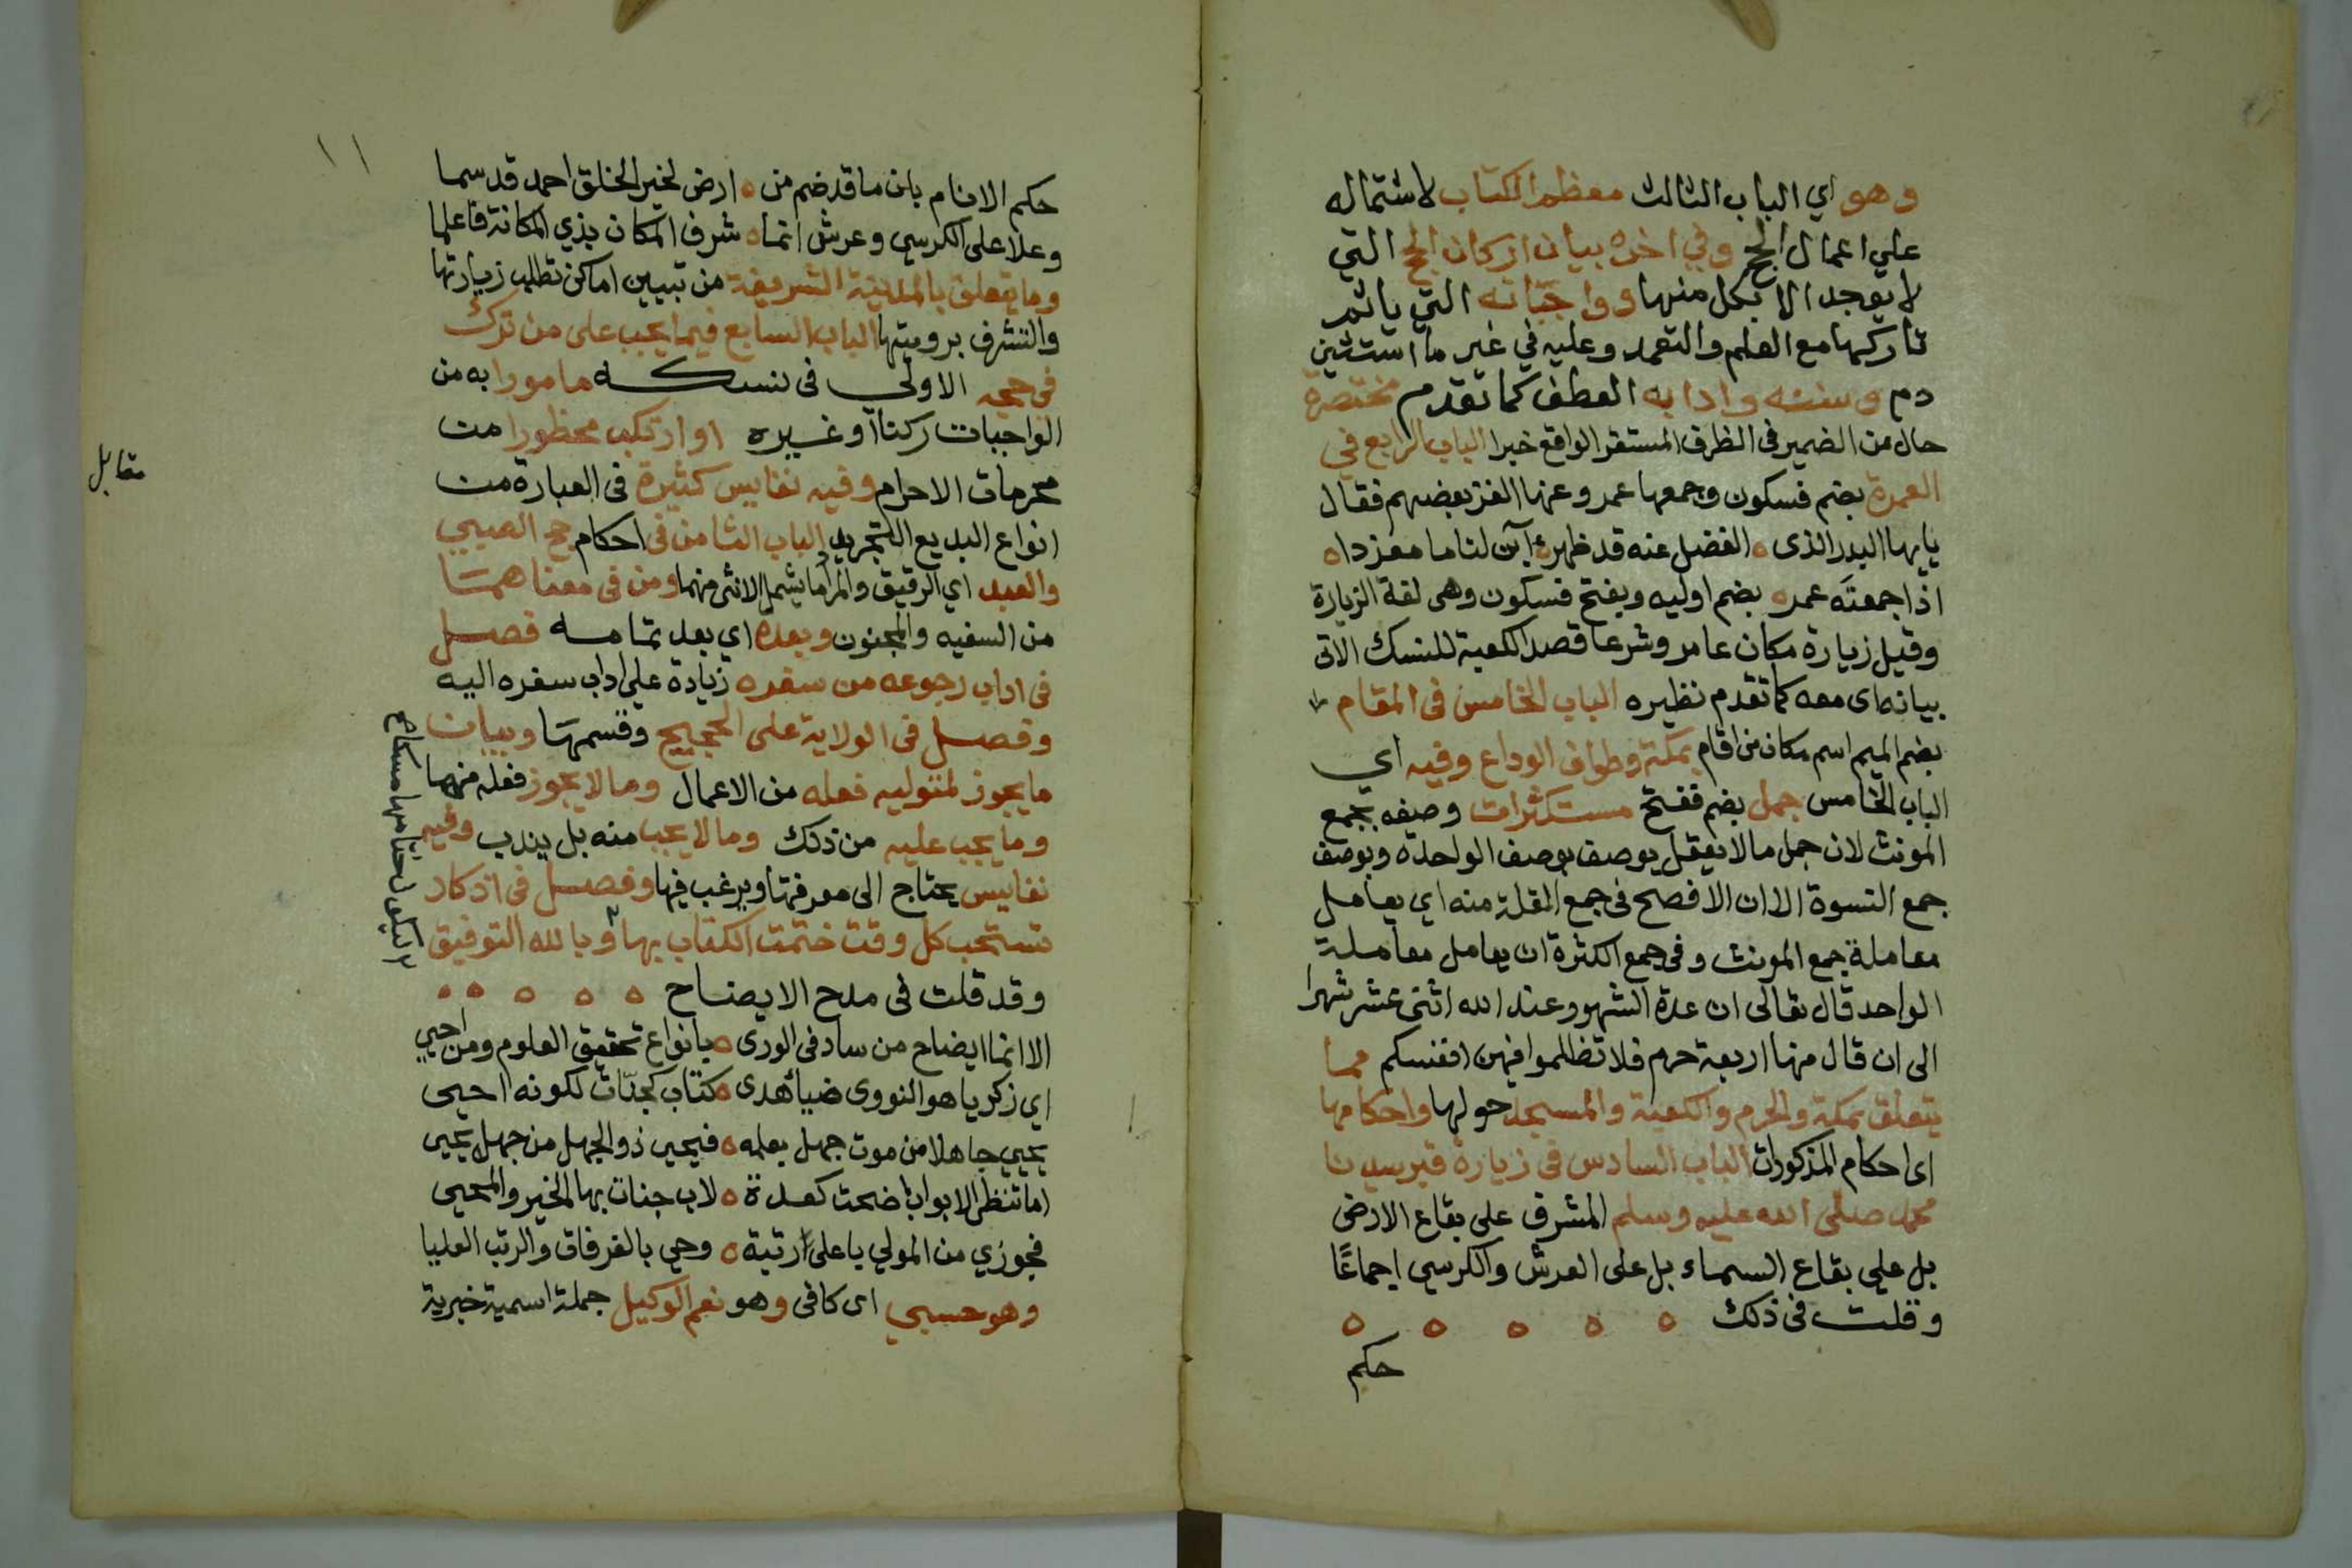 وهو اي الباب الثالث معظم الكتاب لاشتماله
علي اعمال الحج وفي اخره بيان اركان الحج التي
لا يوجد الا بكل منها وواجباته التي ياثم
تاركها مع العلم والتعمد وعليه في غير ما استثنى
دم وسننه وادابه العطف كما تقدم مختصرة
حال من الضمير فى الظرف المستقر الواقع خبرا الباب الرابع في
العمرة بضم فسكون وجمعها عمر وعنها الغز بعضهم فقال
يايها البدر الذى ه الفضل عنه قد ظهر ه ابن لنا ما مفردا ه
اذا جمعته عمر ه بضم اوليه وبفتح فسكون وهى لغة الزيارة
وقيل زيارة مكان عامر وشرعا قصد الكعبة للنسك الاتى
بيانه اى معه كما تقدم نظيره الباب الخامس فى المقام
بضم الميم اسم مكان من اقام بمكة وطواف الوداع وفيه اي
الباب الخامس جمل بضم ففتح مستكثرات وصفه بجمع
المونث لان جمل ما لا يعقل يوصف بوصف الواحدة وبوصف
جمع النسوة الا ان الافصح فى جمع القلة منه اي يعامل
معاملة جمع المونث وفى جمع الكثرة ان يعامل معاملة
الواحد قال تعالى ان عدة الشهور عند الله اثنى عشر شهرا
الى ان قال منها اربعة حرم فلا تظلموا فيهن انفسكم مما
يتعلق بمكة والحرم والكعبة والمسجد حولها واحكامها
اى احكام المذكورات الباب السادس فى زيارة قبر سيدنا
محمد صلى الله عليه وسلم المشرف على بقاع الارض
بل علي بقاع السماء بل على العرش والكرسي اجماعًا
وقلت فى ذلك ه ه ه ه ه
حكم
١١
حكم الانام بان ما قد ضم من ه ارض لخير الخلق احمد قد سما
وعلا على الكرسي وعرش انما ه شرف المكان بذي المكانة فاعلما
وما يتعلق بالمدينة الشريفة من تبيين اماكن تطلب زيارتها
والتشرف برويتها الباب السابع فيما يجب على من ترك
فى حجه الاولي فى نسكه مامورا به من
الواجبات ركنا او غيره او ارتكب محظورا من
محرمات الاحرام وفيه نفايس كثيرة فى العبارة من
انواع البديع التجريد الباب الثامن فى احكام حج الصبي
والعبد اي الرقيق والمراد ما يشمل الانثى منهما ومن فى معناهما
من السفيه والمجنون وبعده اي بعد تمامه فصل
فى اداب رجوعه من سفره زيادة علي اداب سفره اليه
وفصل فى الولاية على الحجيج وقسمها وبيان
ما يجوز لمتوليه فعله من الاعمال وما لا يجوز فعله منها
وما يجب عليه من ذلك وما لا يجب منه بل يندب وفيه
نفايس يحتاج الى معرفتها ويرغب فيها وفصل فى اذكار
تستحب كل وقت ختمت الكتاب بها وبالله التوفيق
وقد قلت فى مدح الايضاح ه ه ه ه ه
الا انما ايضاح من ساد فى الورى ه بانواع تحقيق العلوم ومن احيي
اي زكريا هو النووى ضياء هدى ه كتاب كجنات لكونه احيى
يحيي جاهلا من موت جهل بعلمه ه فيحيى ذو الجهل من جهل يحيى
اما تنظر الابواب اضحت كعدة ه لاب جنات بها الخير والمحيى
فجوزي من المولي باعلى رتبة ه وحي بالغرفات والرتب العليا
وهو حسبي اى كافى وهو نعم الوكيل جملة اسمية خبرية
مقابل